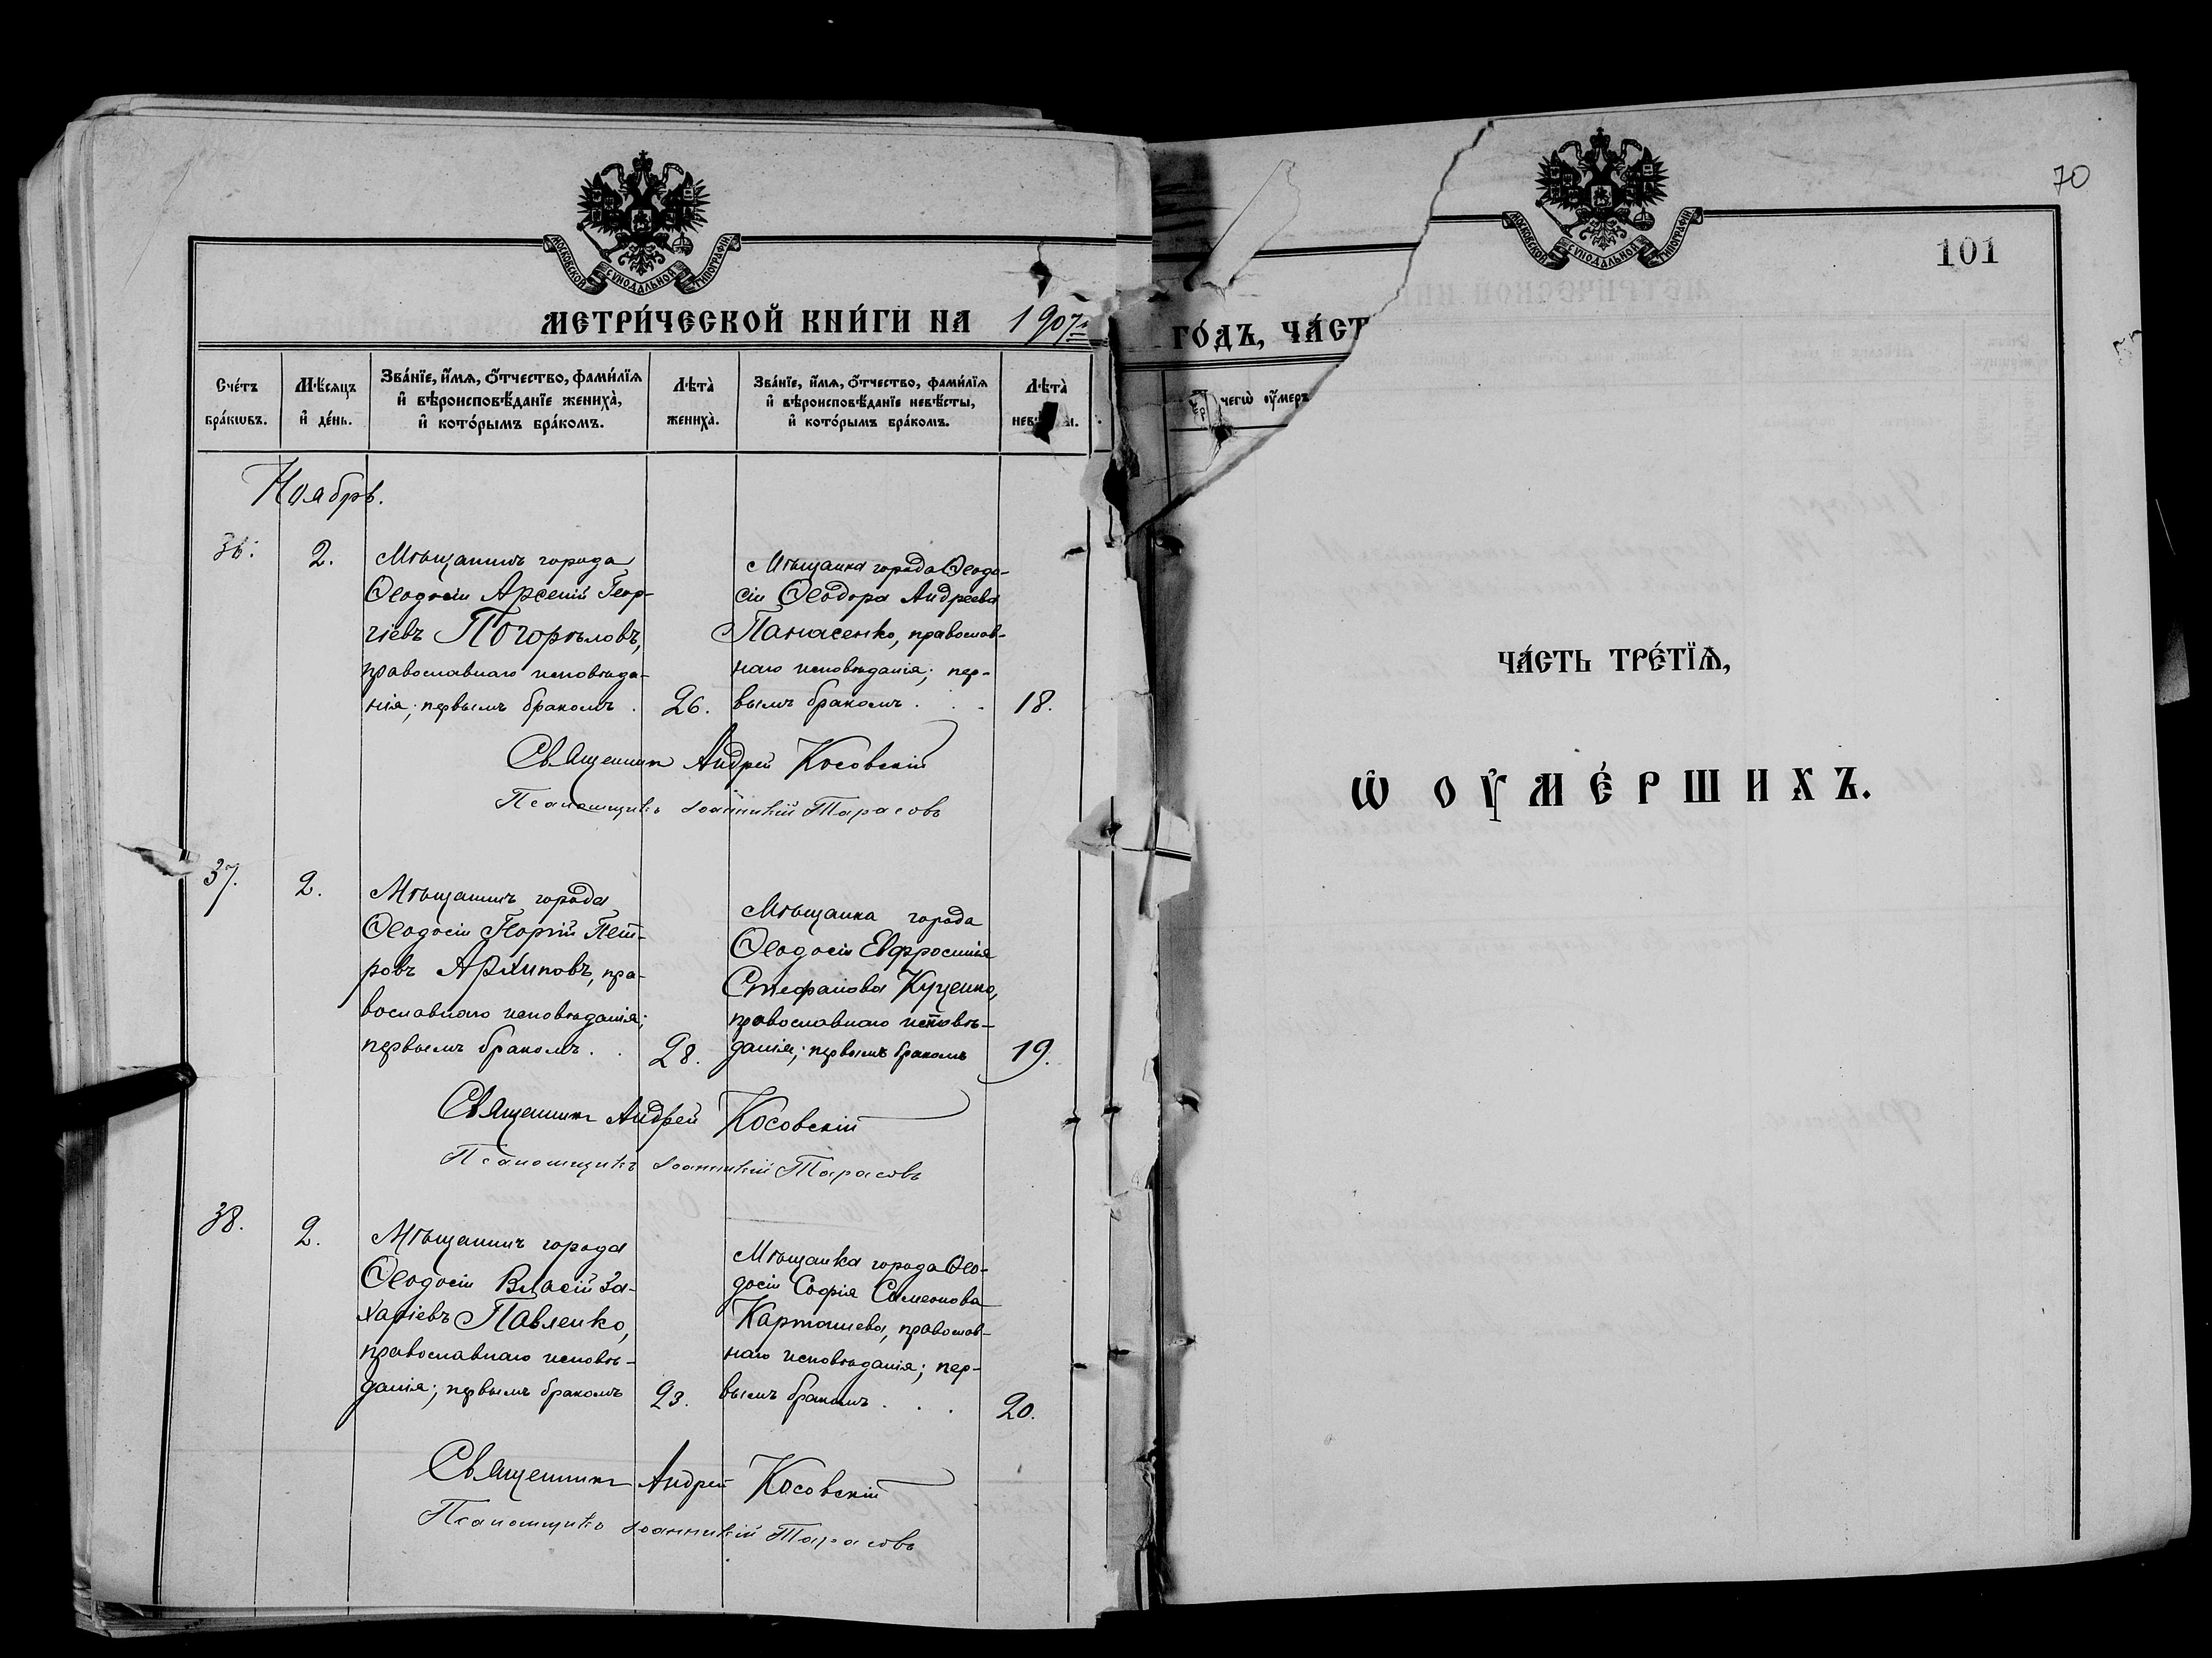 МОСКОВСКОЙ СѴНОДАЛЬНОЙ ТИПОГРАФІИ.
МЕТРИ́ЧЕСКОЙ КНИ́ГИ НА 1907
Сче́тъ бра́кѡвъ.
Мѣ́сяцъ и҆ де́нь.
Зва́нїе, и҆́мѧ, ѻ҆́тчество, фами́лїѧ
и҆ вѣроисповѣ́данїе жениха̀,
и҆ кото́рымъ бра́комъ.
Лѣта̀ жениха̀.
Зва́нїе, и҆́мѧ, ѻ҆́тчество, фами́лїѧ
и҆ вѣроисповѣ́данїе невѣ́сты,
и҆ кото́рымъ бра́комъ.
Лѣта̀
Ноябрь.
36.
2.
Мѣщанинъ города
Ѳеодосіи Арсеній Геор-
гіевъ Погорѣловъ,
православнаго исповѣда-
нія; первымъ бракомъ.
26.
Мѣщанка города Ѳеодо-
сіи Ѳеодора Андреева
Панасенко, православ-
наго исповѣданія; пер-
вымъ бракомъ . . .
18.
Священникъ Андрей Косовскій
Псаломщикъ Іоанникій Тарасовъ
37.
2.
Мѣщанинъ города
Ѳеодосіи Георгій Пет-
ровъ Архиповъ, пра-
вославнаго исповѣданія;
первымъ бракомъ. .
28.
Мѣщанка города
Ѳеодосіи Евфросинія
Стефанова Куценко,
православнаго исповѣ-
данія; первымъ бракомъ
19.
Священникъ Андрей Косовскій
Псаломщикъ Іоанникій Тарасовъ
38.
2.
Мѣщанинъ города
Ѳеодосіи Власій За-
харіевъ Павленко,
православнаго исповѣ-
данія; первымъ бракомъ
23.
Мѣщанка города Ѳео-
досіи Софія Симеонова
Карташева, православ-
наго исповѣданія; пер-
вымъ бракомъ . . .
20.
Священникъ Андрей Косовскій
Псаломщикъ Іоанникій Тарасовъ
ГО́ДЪ, ЧА́СТ
чегѡ̀ ᲂу҆́меръ
МОСКОВСКОЙ СѴНОДАЛЬНОЙ ТИПОГРАФІИ.
70
101
ЧА́СТЬ ТРЕ́ТЇѦ,
Ѡ҆ ОУ҆МЕ́РШИХЪ.